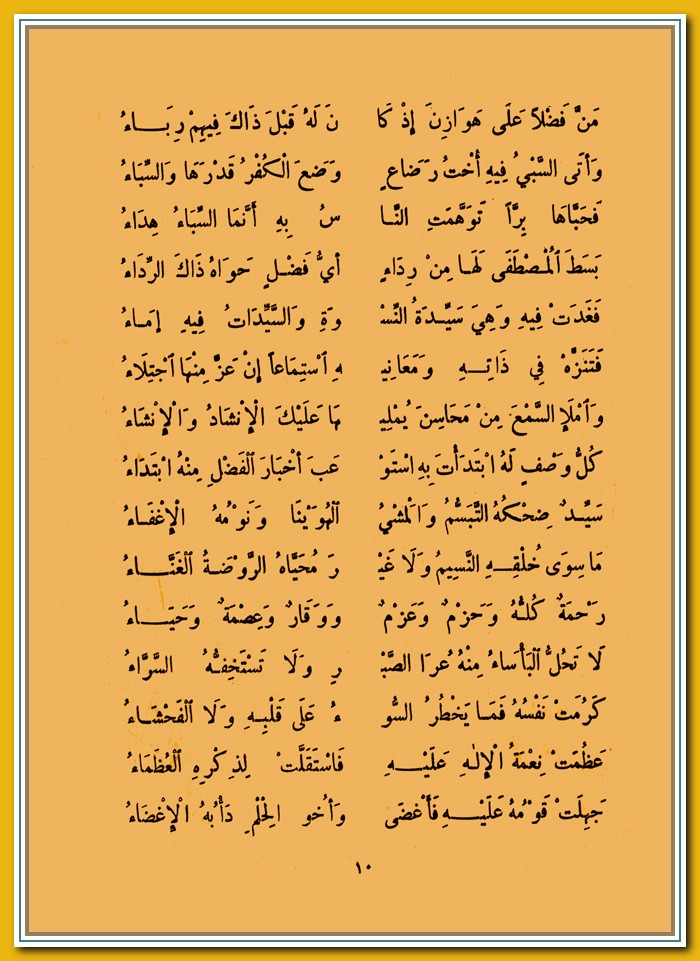 مَنَّ فَضْلاً عَلَى هَوَازِنَ إِذْ كَا نَ لَهُ قَبْلَ ذَاكَ فِيهِمْ رِبَــاءُ
وَأَتَى السَّبْيُ فِيهِ أُخْتُ رَضَاعٍ وَضَعَ الْكُفْرُ قَدْرَهَا وَالسِّبَاءُ
فَحَبَاهَا بِرّاً تَوَهَّمَتِ النَّـا سُ بِهِ أَنَّمَا السِّبَاءُ هِدَاءُ
بَسَطَ ٱلْمُصْطَفَى لَهَـا مِنْ رِدَاءٍ أيُّ فَضْـلٍ حَوَاهُ ذَاكَ الرِّدَاءُ
فَغَدَتْ فِيهِ وَهِيَ سَيِّـدَةُ النِّسْـ وَةِ وَالسَّيِّدَاتُ فِيهِ إمَـاءُ
فَتَنَزَّهْ فِي ذَاتِـــهِ وَمَعَانِيـ ـهِ ٱسْتِمَاعاً إِنْ عَزَّ مِنْهَا ٱجْتِلَاءُ
وَٱمْلَإِ السَّمْعَ مِنْ مَحَاسِنَ يُمْلِيـ ـهَا عَلَيْكَ الْإِنْشَادُ وَالْإِنْشَاءُ
كُلُّ وَصْفٍ لَهُ ابْتَدَأْتَ بِهِ اسْتَوْ عَبَ أَخْبَارَ ٱلْفَضْلِ مِنْهُ ابْتَدَاءُ
سَيِّـدٌ ضِحْكُهُ التَّبَسُّمُ وَالمَشْيُ ٱلْهُوَيْنَا وَنَوْمُهُ الْإِغْفَـاءُ
مَا سِوَى خُلْقِـــهِ النَّسِيمُ وَلَا غَيْـ رَ مُحَيَّاهُ الرَّوْضَـةُ ٱلْغَنَّـــاءُ
رَحْمَةٌ كُلُّـهُ وَحَزْمٌ وَعَزْمٌ وَوَقَارٌ وَعِصْمَةٌ وَحَيَـــاءُ
لَا تَحُلُّ ٱلْبَأْسَاءُ مِنْهُ عُرَا الصَّبْـ ـرِ وَلَا تَسْتَخِفُّـهُ السَّرَّاءُ
كَرُمَتْ نَفْسُهُ فَمَـا يَخْطُرُ السُّو ءُ عَلَى قَلْبِـهِ وَلَا ٱلْفَحْشَـاءُ
عَظُمَتْ نِعْمَةُ الْإِلٰـهِ عَلَيْــــهِ فَاسْتَقَلَّتْ لِذِكْرِهِ ٱلْعُظَمَاءُ
جَهِلَتْ قَوْمُهُ عَلَيْــــهِ فَأَغْضَى وَأَخُو الحِلْمِ دَأْبُهُ الْإِغْضَاءُ
١٠